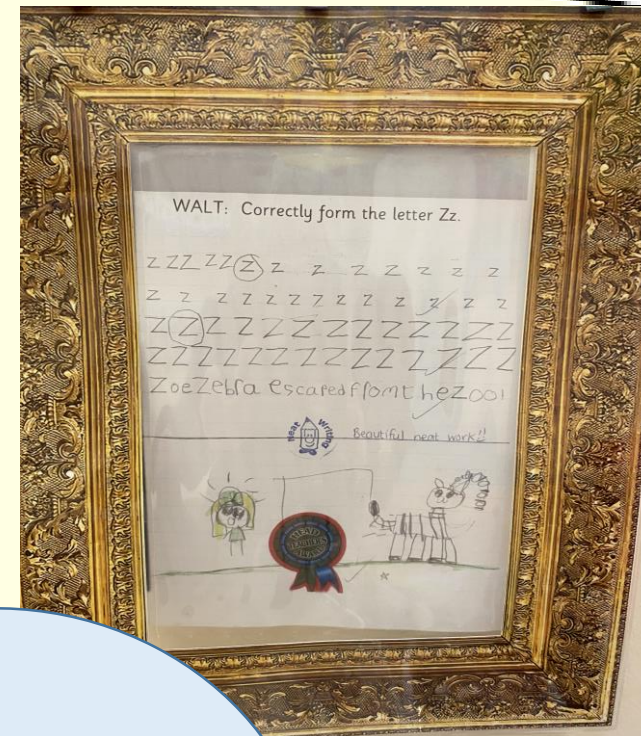 WALT: Correctly form the letter Zz.
z z z z z z z z z z z z z
z z z z z z z z z z z z z
Z Z Z Z Z Z Z Z Z Z Z Z Z Z
Z Z Z Z Z Z Z Z Z Z Z Z Z Z
Zoe Zebra escared from the zoo!
Neat Writing
Beautiful neat work!!
HEAD TEACHERS AWARD